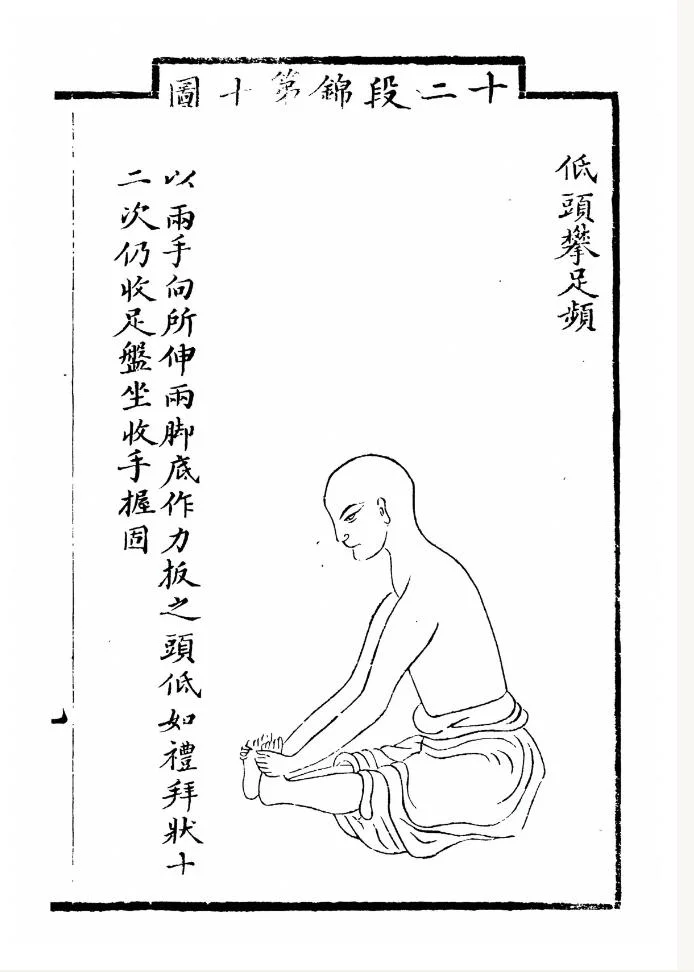 十二段錦第十圖
低頭攀足頻
以兩手向所伸兩脚底作力扳之頭低如禮拜狀十
二次仍收足盤坐收手握固